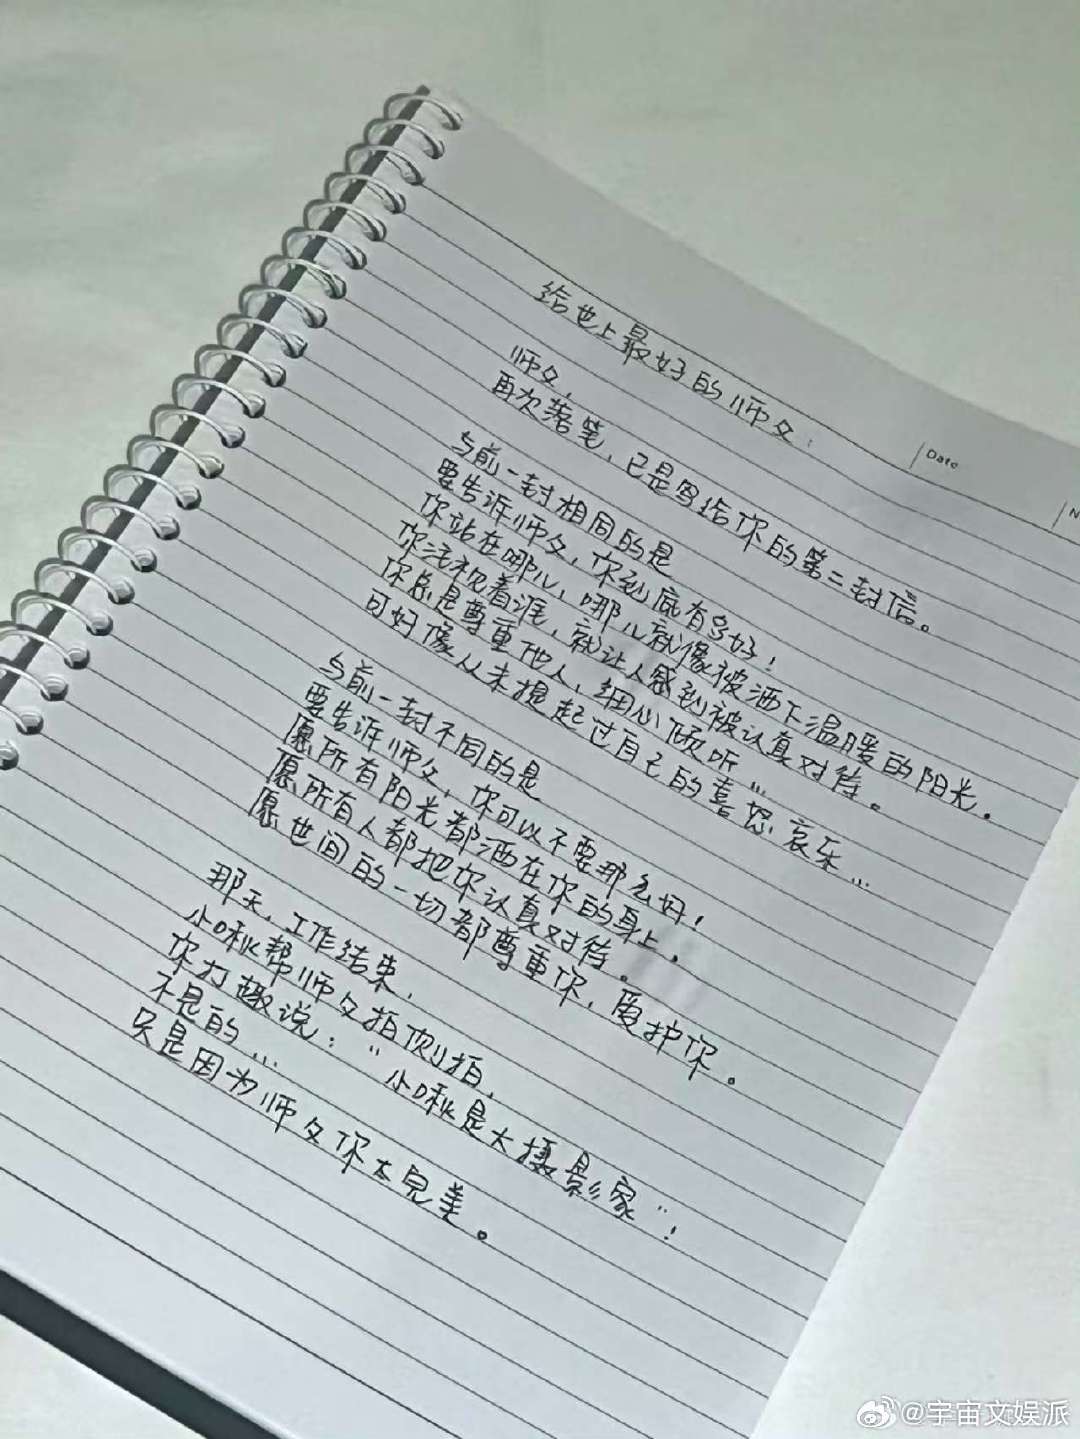 给世上最好的师父：
Date
N
师父，
再次落笔，已是写给你的第二封信。
与前一封相同的是
要告诉师父，你到底有多好！
你站在哪儿，哪儿就像被洒下温暖的阳光，
你注视着谁，就让人感到被认真对待。
你总是尊重他人，细心倾听…
可好像从未提起过自己的喜怒哀乐…
与前一封不同的是
要告诉师父，你可以不要那么好！
愿所有阳光都洒在你的身上，
愿所有人都把你认真对待。
愿世间的一切都尊重你，爱护你。
那天，工作结束，
小啾帮师父拍侧拍，
你打趣说：“小啾是大摄影家”！
不是的…
只是因为师父你太完美。
@宇宙文娱派